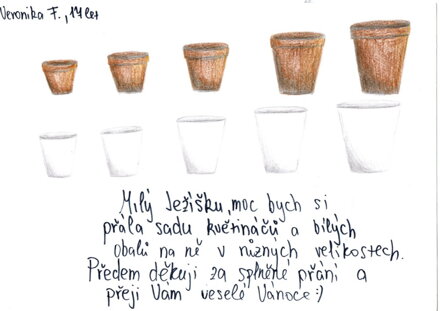 Veronika F., 14 let
Milý Ježíšku, moc bych si
přála sadu květináčů a bílých
obalů na ně v různých velikostech.
Předem děkuji za splněné přání a
přeji Vám veselé Vánoce :)